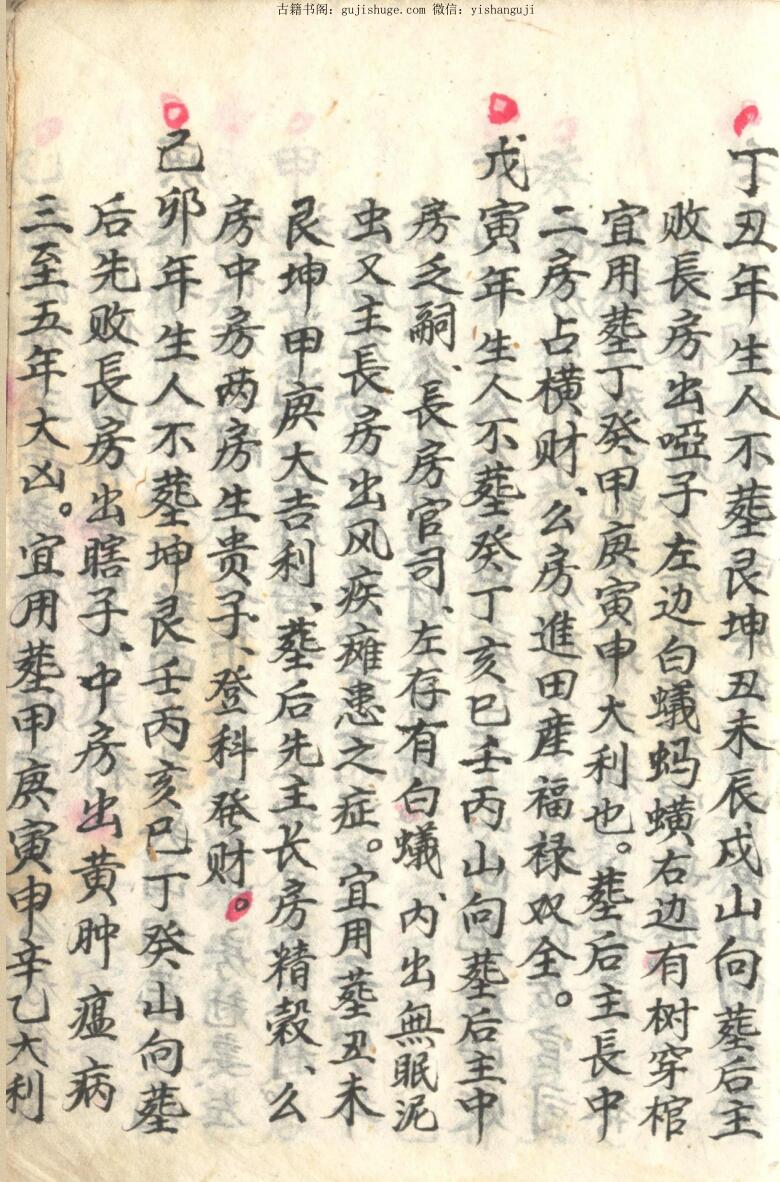 古籍书阁：gujishuge.com 微信：yishanguji
丁丑年生人不葬艮坤丑未辰戍山向葬后主
败長房出啞子左边白蟻蚂蟥右边有树穿棺
宜用葬丁癸甲庚寅申大利也。葬后主長中
二房占横财、么房進田産福禄双全。
戊寅年生人不葬癸丁亥巳壬丙山向葬后主中
房乏嗣、長房官司、左存有白蟻、内出無眠泥
虫又主長房出风疾瘫患之症。宜用葬丑未
艮坤甲庚大吉利、葬后先主长房精榖、么
房中房两房生贵子、登科發财。
己卯年生人不葬坤艮壬丙亥巳丁癸山向葬
后先败長房出瞎子、中房出黄肿瘟病
三至五年大凶。宜用葬甲庚寅申辛乙大利